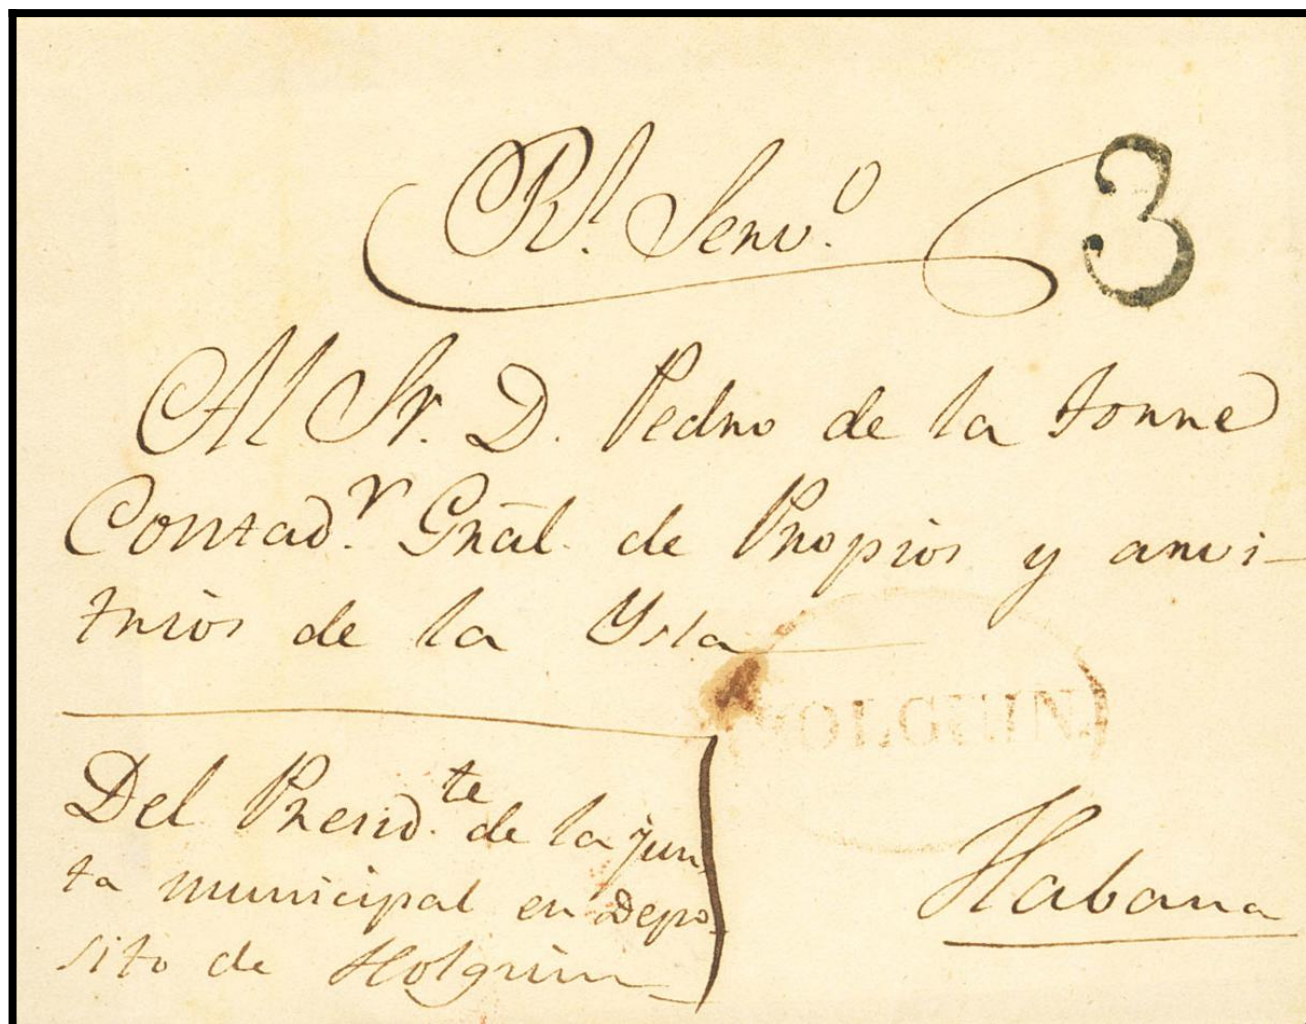 Rl. Servo.
3
Al Sr. D. Pedro de la torre
Contadr. Gral. de Propios y arvi-
trios de la Ysla
HOLGUIN.
Del Presidte. de la jun
ta municipal en Depo-
sito de Holguin
Habana